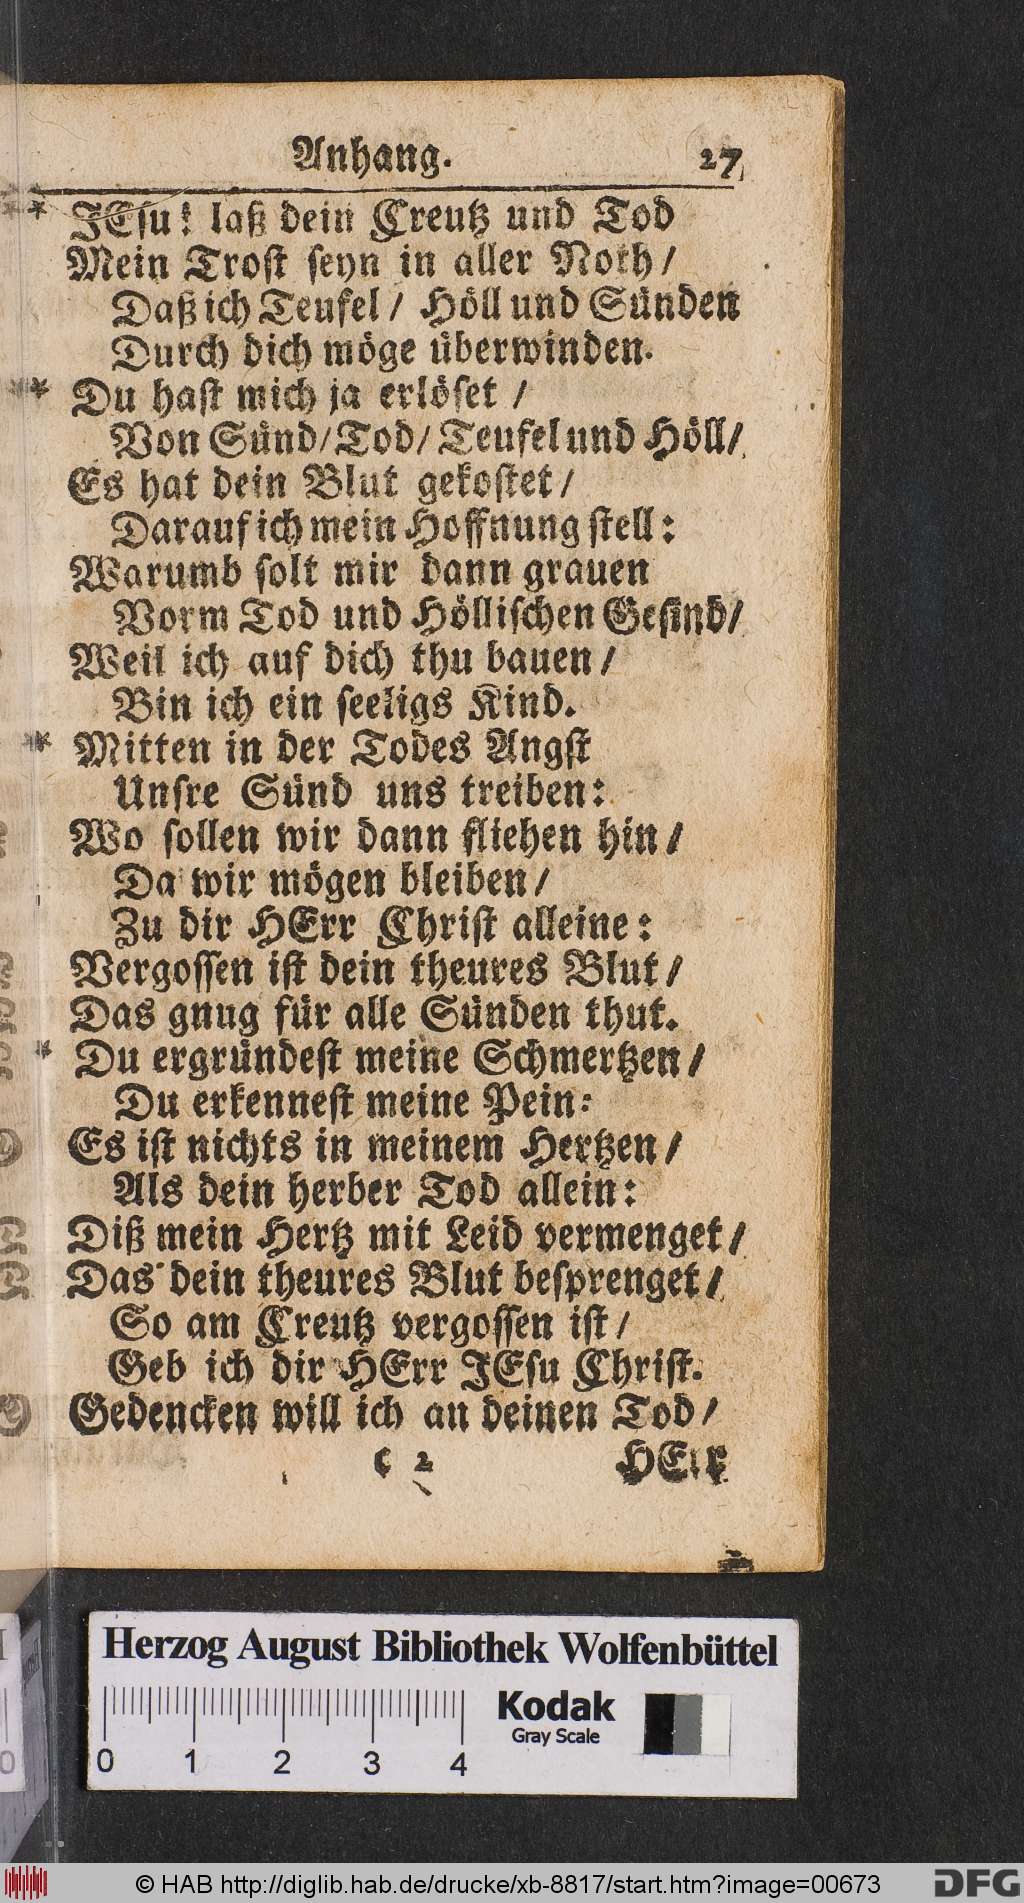 Anhang. 27
** JEsu! laß dein Creutz und Tod
Mein Trost seyn in aller Noth/
Daß ich Teufel/ Höll und Sünden
Durch dich möge überwinden.
** Du hast mich ja erlöset /
Von Sünd/ Tod/ Teufel und Höll/
Es hat dein Blut gekostet/
Darauf ich mein Hoffnung stell:
Warumb solt mir dann grauen
Vorm Tod und Höllischen Gesind/
Weil ich auf dich thu bauen/
Bin ich ein seeligs Kind.
* Mitten in der Todes Angst
Unsre Sünd uns treiben:
Wo sollen wir dann fliehen hin/
Da wir mögen bleiben/
Zu dir HErr Christ alleine:
Vergossen ist dein theures Blut/
Das gnug für alle Sünden thut.
* Du ergründest meine Schmertzen/
Du erkennest meine Pein:
Es ist nichts in meinem Hertzen/
Als dein herber Tod allein:
Diß mein Hertz mit Leid vermenget/
Das dein theures Blut besprenget/
So am Creutz vergossen ist/
Geb ich dir HErr JEsu Christ.
Gedencken will ich an deinen Tod/
C 2 HErr
Herzog August Bibliothek Wolfenbüttel
Kodak
Gray Scale
0 1 2 3 4
© HAB http://diglib.hab.de/drucke/xb-8817/start.htm?image=00673
DFG